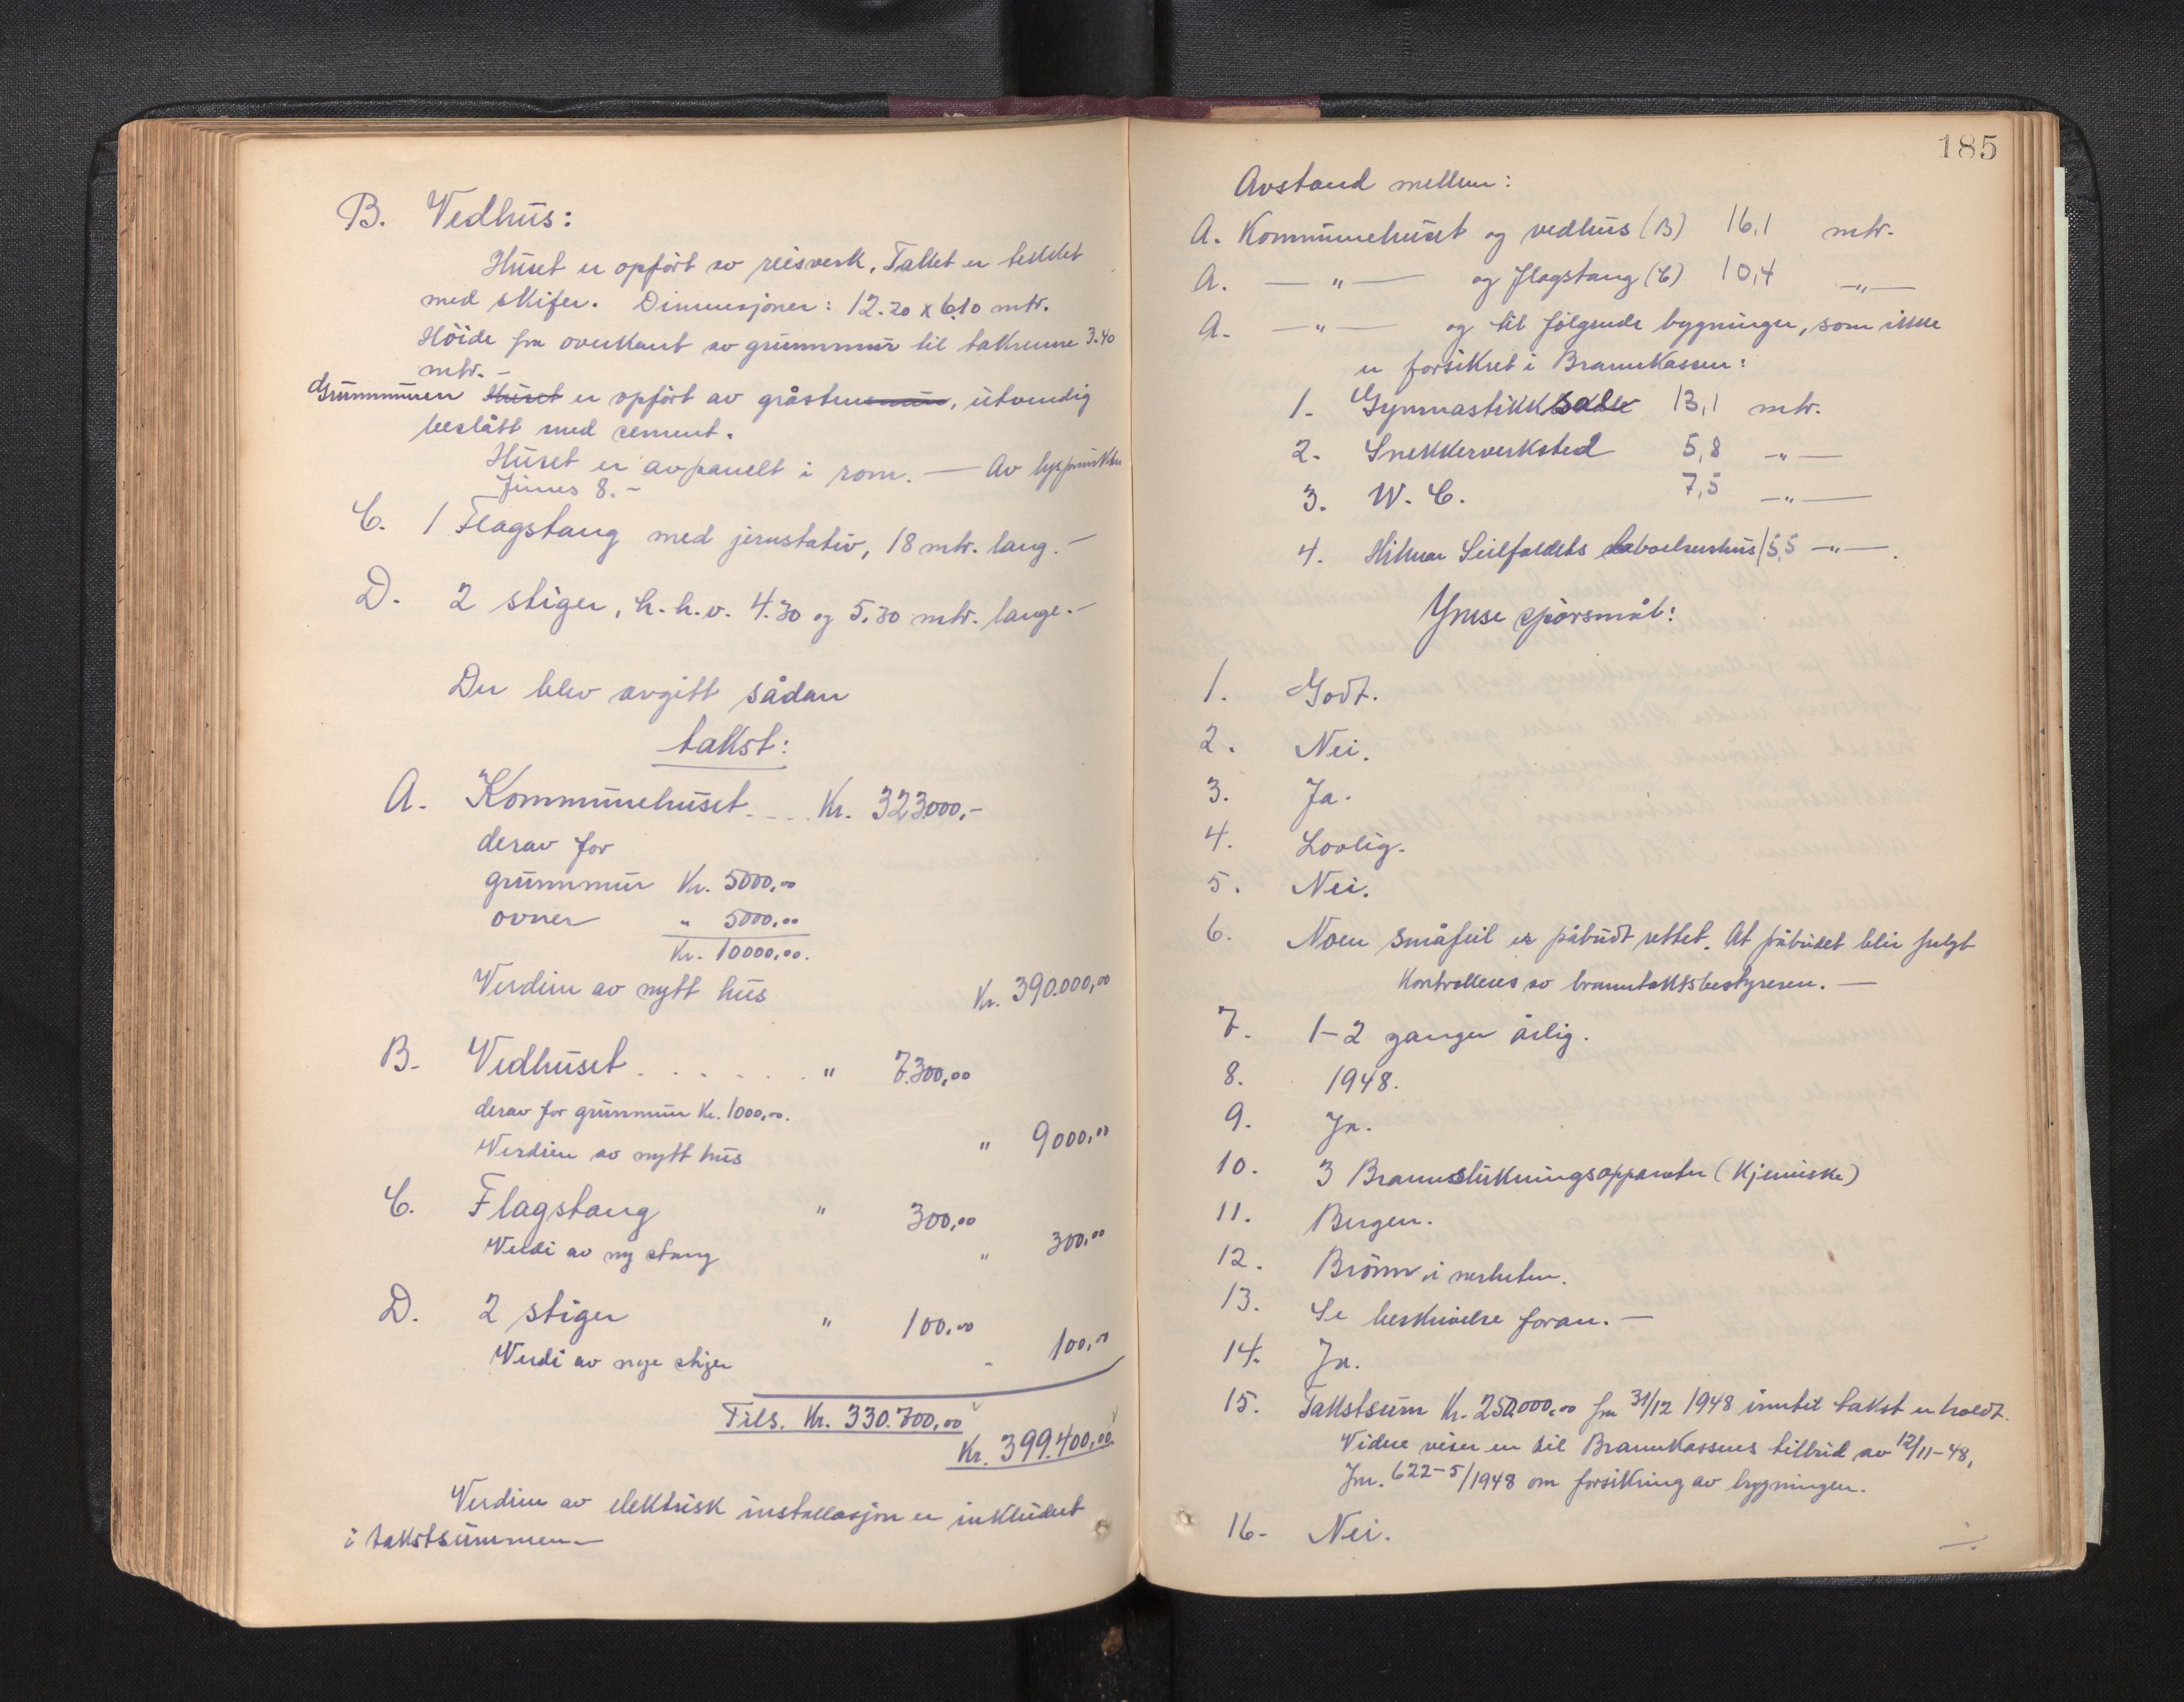 B. Vedhus:
Huset er opført av reisverk. Taket er tekket
med skifer. Dimensjoner: 12.20 x 6.10 mtr.
Höide fra overkant av grunnmur til takrenne 3.40
mtr. –
Grunnmuren Huset er opført av gråstensmur, utvendig
beslått med cement.
Huset er avpanelt i rom. — Av lyspunkter
finnes 8. –
C. 1 Flagstang med jernstativ, 18 mtr. lang. –
D. 2 stiger, h.h.v. 4.30 og 5.30 mtr. lange. –
Der blev avgitt sådan
takst:
A. Kommunehuset .... Kr. 323000,-
derav for
grunnmur Kr. 5000,00
ovner " 5000,00
Kr. 10000,00.
Verdien av nytt hus Kr. 390.000,00
B. Vedhuset . . . . . . . " 7.300,00
derav for grunnmur Kr. 1000,00.
Verdien av nytt hus " 9000,00
C. Flagstang " 300,00
Verdi av ny stang " 300,00
D. 2 stiger " 100,00
Verdi av nye stiger - 100,00
Tils. Kr. 330.700,00
Kr. 399.400,00
Verdien av elektrisk installasjon er inkludert
i takstsummen. —
185
Avstand mellem:
A. Kommunehuset og vedhus (B) 16,1 mtr.
A. — " — og flagstang (C) 10,4 — " —
A. — " — og til følgende bygninger, som ikke
er forsikret i Brannkassen:
1. Gymnastikksale 13,1 mtr.
2. Snekkerverksted 5,8 — " —
3. W. C. 7,5 — " —
4. Hilmar Seilfaldets 15,5 — " — .
Ymse spørsmål:
1. Godt.
2. Nei.
3. Ja.
4. Lovlig.
5. Nei.
6. Noen småfeil er påbudt rettet. At påbudet blir fulgt
kontrolleres av branntakstbestyreren. —
7. 1–2 ganger årlig.
8. 1948.
9. Ja.
10. 3 Brannslukningsapparater (Kjemiske)
11. Bergen.
12. Brönn i nerheten.
13. Se beskrivelse foran. —
14. Ja.
15. Takstsum Kr. 250.000,00 fra 31/12 1948 inntil takst er holdt.
Videre viser en til Brannkassens tilbud av 12/11-48,
Jnr. 622-5/1948 om forsikring av bygningen.
16. Nei.